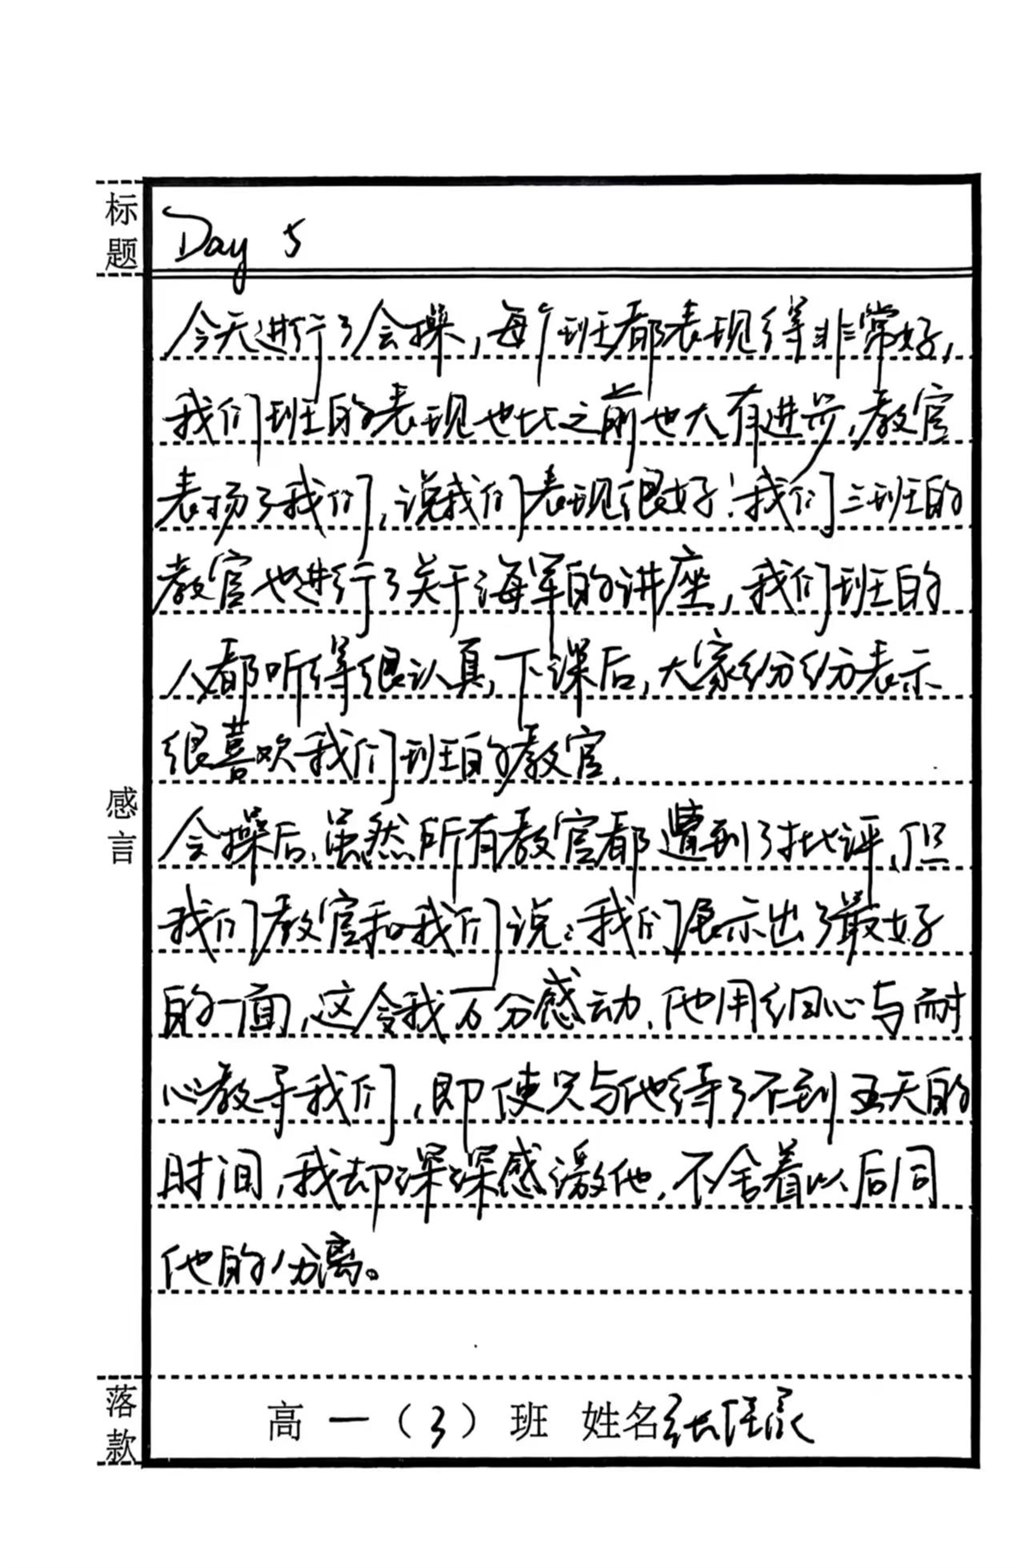 标题
Day 5
今天进行了会操,每个班都表现得非常好,
我们班的表现也比之前也大有进步,教官
表扬了我们,说我们表现很好!我们三班的
教官也进行了关于海军的讲座,我们班的
人都听得很认真,下课后,大家纷纷表示
很喜欢我们班的教官.
会操后,虽然所有教官都遭到了批评,但
我们教官和我们说:我们展示出了最好
的一面,这令我万分感动,他用细心与耐
心教导我们,即使只与他待了不到五天的
时间,我却深深感激他,不舍着以后同
他的分离。
感言
落款
高一(3)班 姓名张